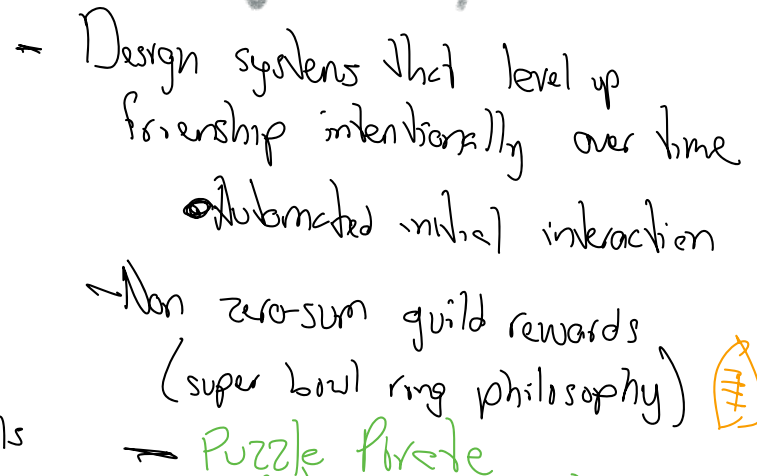 - Design systems that level up
frienship intentionally over time
• Automated initial interaction
- Non zero-sum guild rewards
(super bowl ring philosophy)
ls - Puzzle Pirate